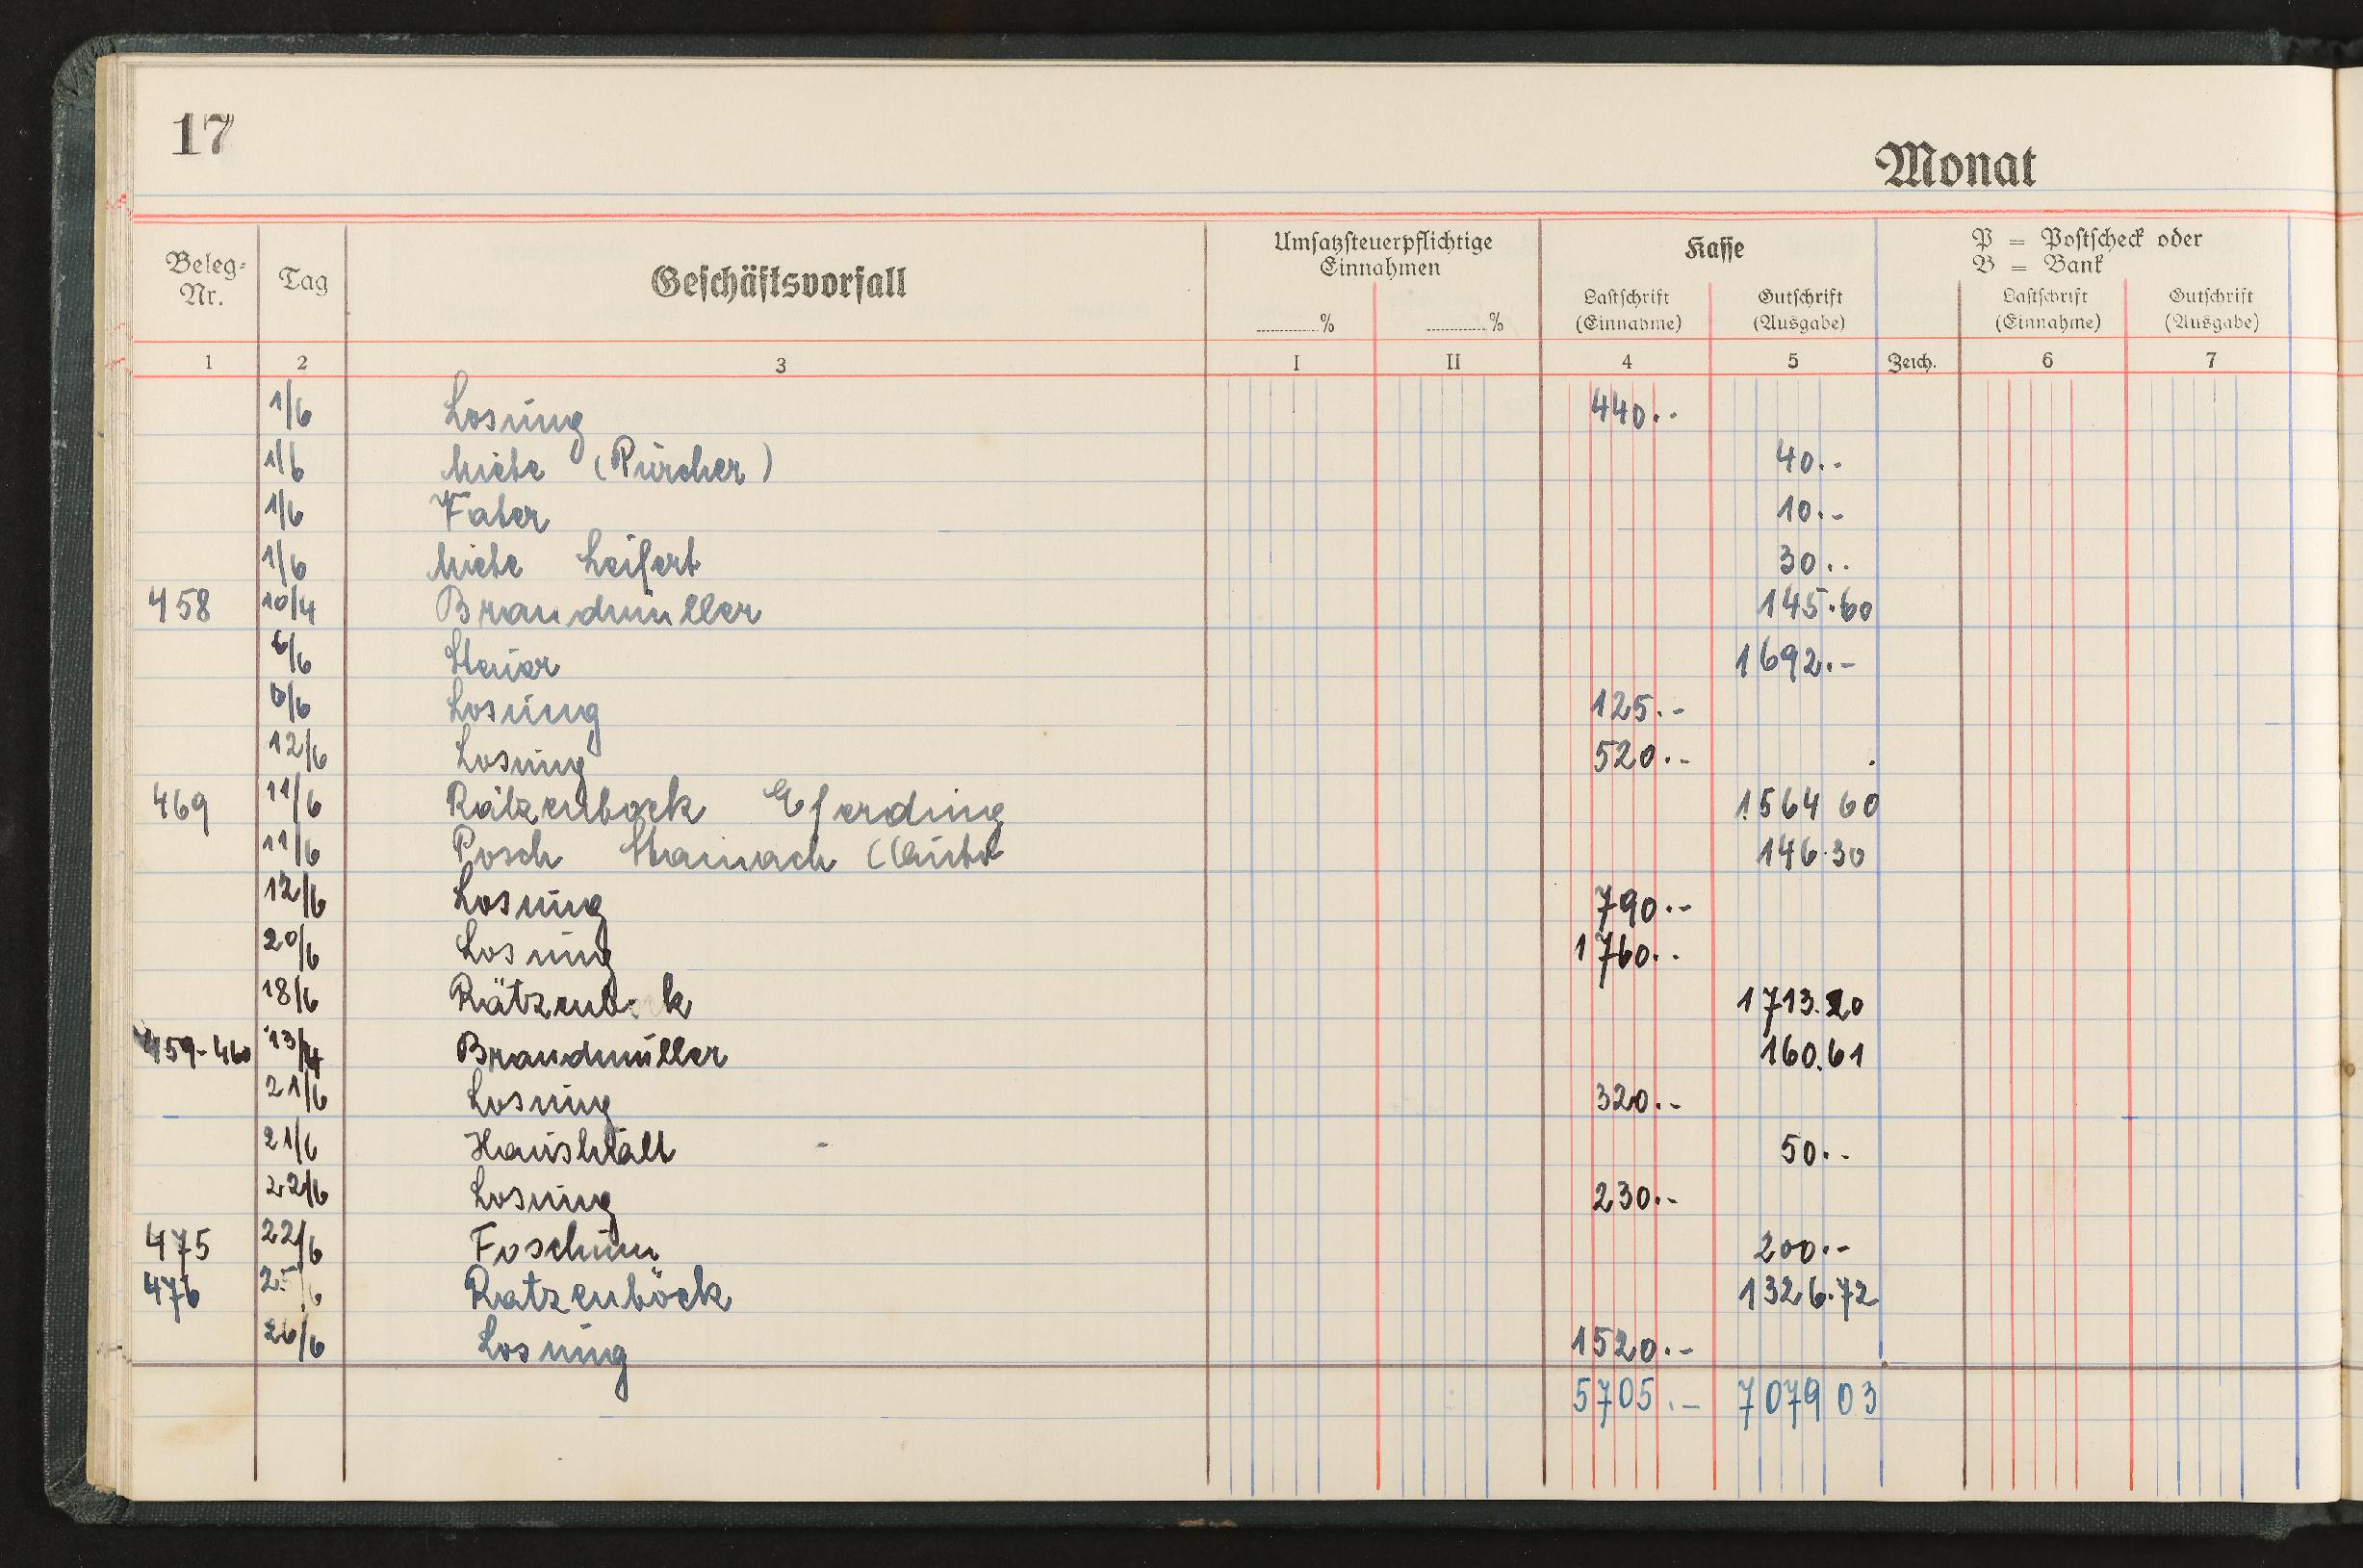 17
Monat
Beleg-Nr. Tag Geschäftsvorfall Umsatzsteuerpflichtige Einnahmen Kasse P = Postscheck oder B = Bank
% % Lastschrift (Einnahme) Gutschrift (Ausgabe) Lastschrift (Einnahme) Gutschrift (Ausgabe)
1 2 3 I II 4 5 Zeich. 6 7
1/6 Losung 440.-
1/6 Miete (Pürcher) 40.-
1/6 Fater 10.-
1/6 Miete Leifert 30.-
458 10/4 Brandmüller 145.60
6/6 Steuer 1692.-
6/6 Losung 125.-
12/6 Losung 520.-
469 11/6 Rätzenböck Eferding 1564 60
11/6 Posch Stainach (Auto 146.30
12/6 Losung 790.-
20/6 Losung 1760.-
18/6 Rätzenb k 1713.20
459-460 13/4 Brandmüller 160.61
21/6 Losung 320.-
21/6 Haushalt 50.-
22/6 Losung 230.-
475 22/6 Foschum 200.-
476 25/6 Ratzenböck 1326.72
26/6 Losung 1520.-
5705.- 7079 03